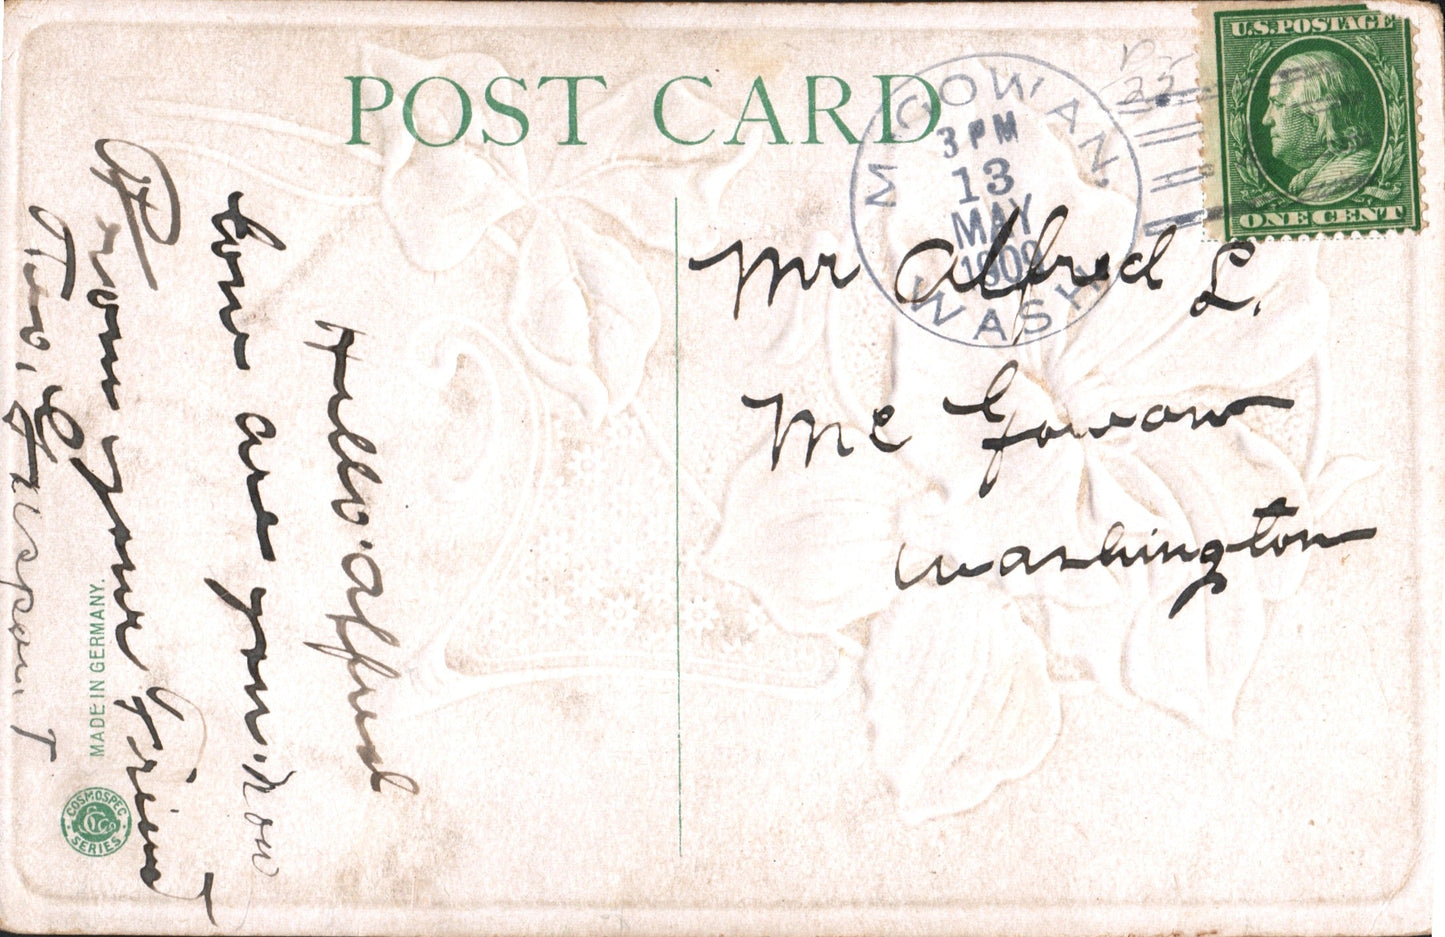 POST CARD
U.S.POSTAGE
ONE CENT
MCGOWAN,
3 PM
13
MAY
1909
WASH.
Mr Alfred L.
Mc Gowan
Washington
Hello Alfred
how are you. now
From your Friend
MADE IN GERMANY.
COSMOSPEC
SERIES